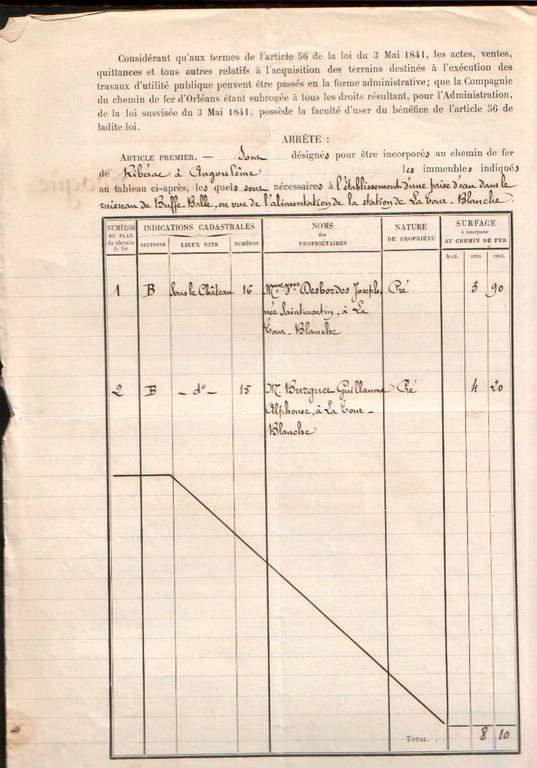 Considérant qu'aux termes de l'article 56 de la loi du 3 Mai 1841, les actes, ventes,
quittances et tous autres relatifs à l'acquisition des terrains destinés à l'exécution des
travaux d'utilité publique peuvent être passés en la forme administrative; que la Compagnie
du chemin de fer d'Orléans étant subrogée à tous les droits résultant, pour l'Administration,
de la loi susvisée du 3 Mai 1841, possède la faculté d'user du bénéfice de l'article 56 de
ladite loi.
ARRÊTE :
ARTICLE PREMIER. — Sont désignés pour être incorporés au chemin de fer
de Ribérac à Angoulême les immeubles indiqués
au tableau ci-après, les quels sont nécessaires à l'établissement d'une prise d'eau dans le
ruisseau de Buffe-Balle, en vue de l'alimentation de la station de La Tour-Blanche
NUMÉROS
DU PLAN
du chemin
de fer
INDICATIONS CADASTRALES
SECTIONS
LIEUX DITS
NUMÉROS
NOMS
des
PROPRIÉTAIRES
NATURE
DE PROPRIÉTÉ
SURFACE
à incorporer
AU CHEMIN DE FER
hect. ares cent.
1 B Sous le Château 16 Mme Vve Desbordes Joseph, Pré 3 90
née Saintmartin, à La
Tour-Blanche
2 B - do - 15 M. Burguet Guillaume Pré 4 20
Alphonse, à La Tour-
Blanche
TOTAL. . . 8 10